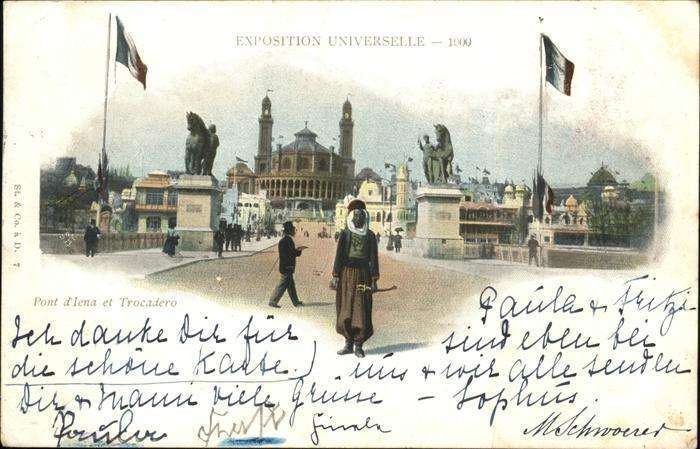 EXPOSITION UNIVERSELLE — 1900
St. & Co. à D. 7
Pont d'Iena et Trocadero
Ich danke Dir für
die schöne Karte)
Dir & Mami viele Grüsse
Paula & Fritzi
sind eben bei
uns & wir alle senden
– Sophus.
Paula
M Schwoerer